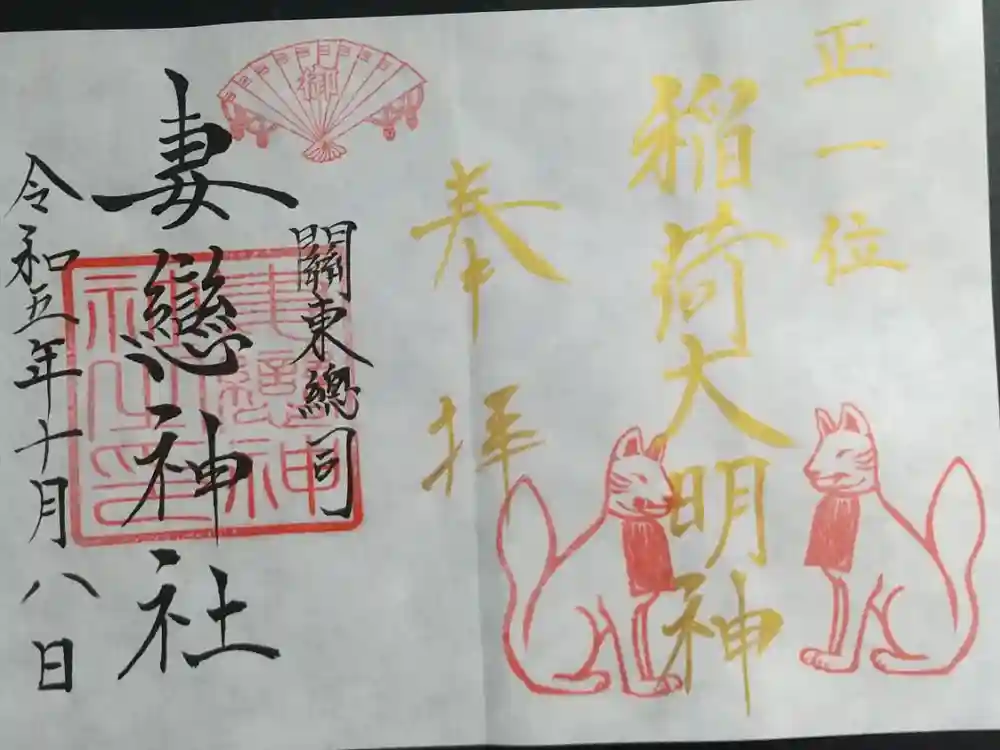 正一位
稲荷大明神
奉拝
御
關東總司
妻戀神社
妻戀神
社之印
令和五年十月八日